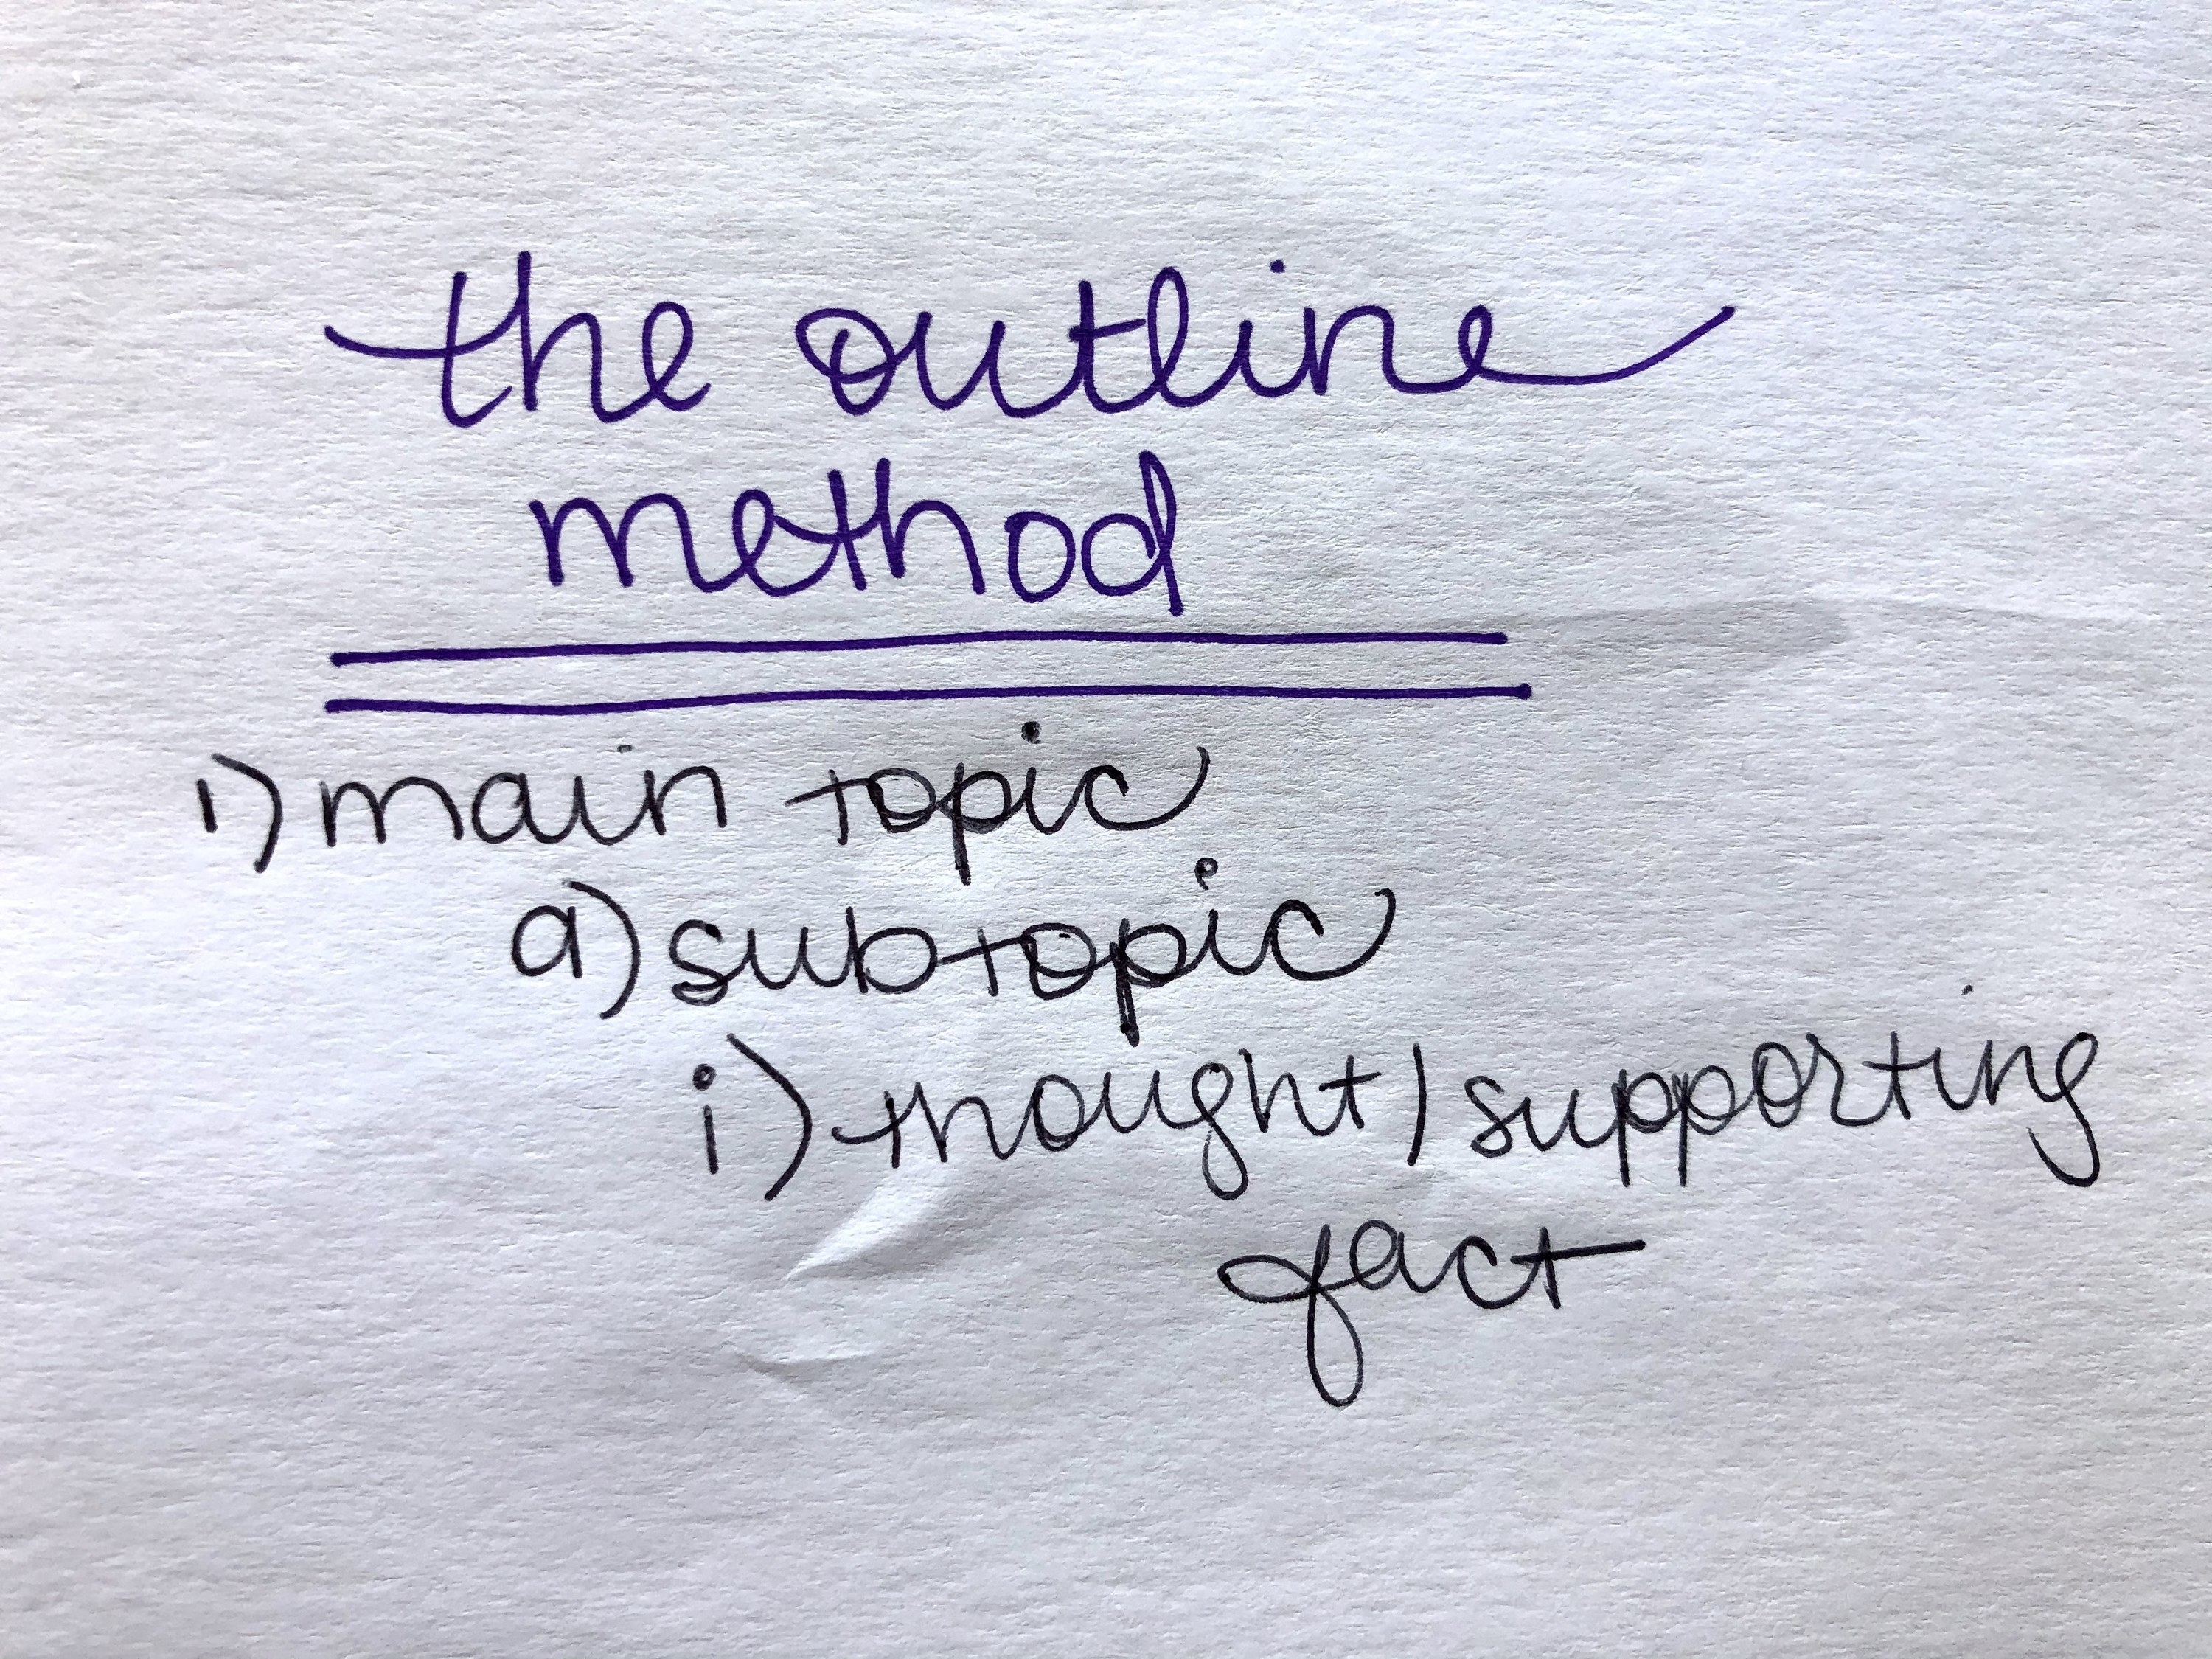 the outline
method
1) main topic
a) subtopic
i) thought/supporting
fact